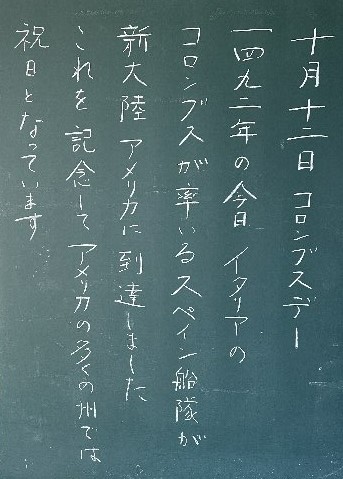 十月十二日 コロンブスデー
一四九二年の今日 イタリアの
コロンブスが率いるスペイン船隊が
新大陸 アメリカに到達しました
これを記念して アメリカの多くの州では
祝日となっています